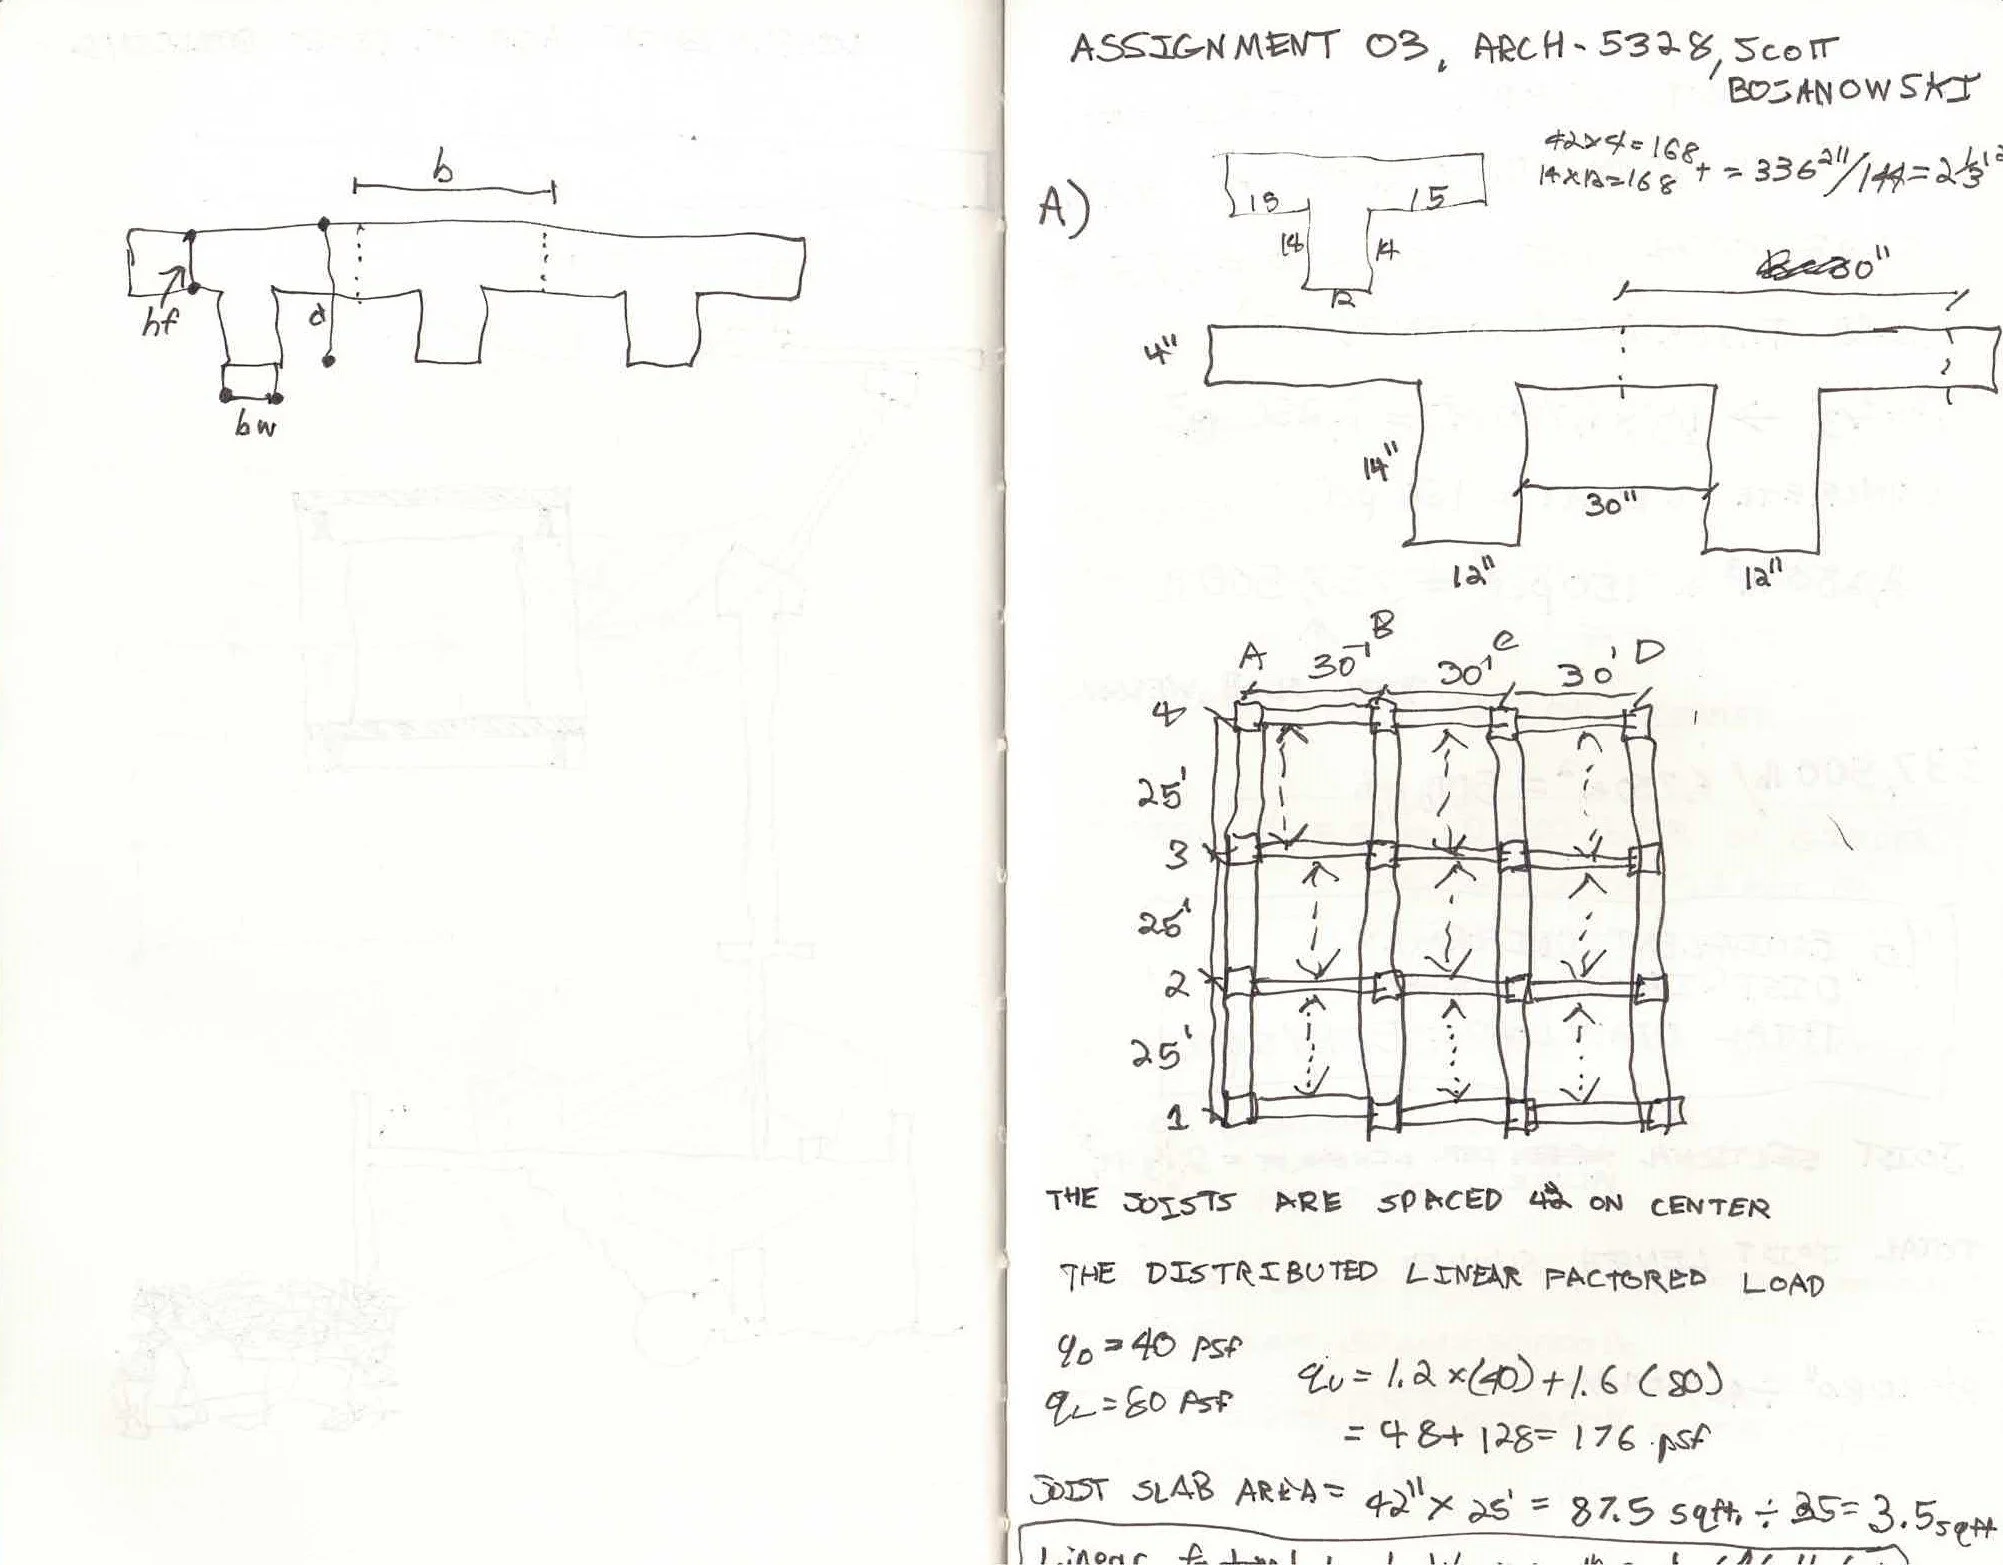 b
hf
d
bw
ASSIGNMENT 03, ARCH-5328, SCOTT
BOJANOWSKI
A)
42x4=168
14x12=168 + = 336²"/144=2 1/3
15 15
14 14
12
30"
4"
14"
30"
12" 12"
A B C D
30' 30' 30'
4
25'
3
25'
2
25'
1
THE JOISTS ARE SPACED 42 ON CENTER
THE DISTRIBUTED LINEAR FACTORED LOAD
qD = 40 psf
qL = 80 PSF
qU = 1.2 x (40) + 1.6 (80)
= 48 + 128 = 176 psf
JOIST SLAB AREA = 42" x 25' = 87.5 sqft. ÷ 25 = 3.5 sqft